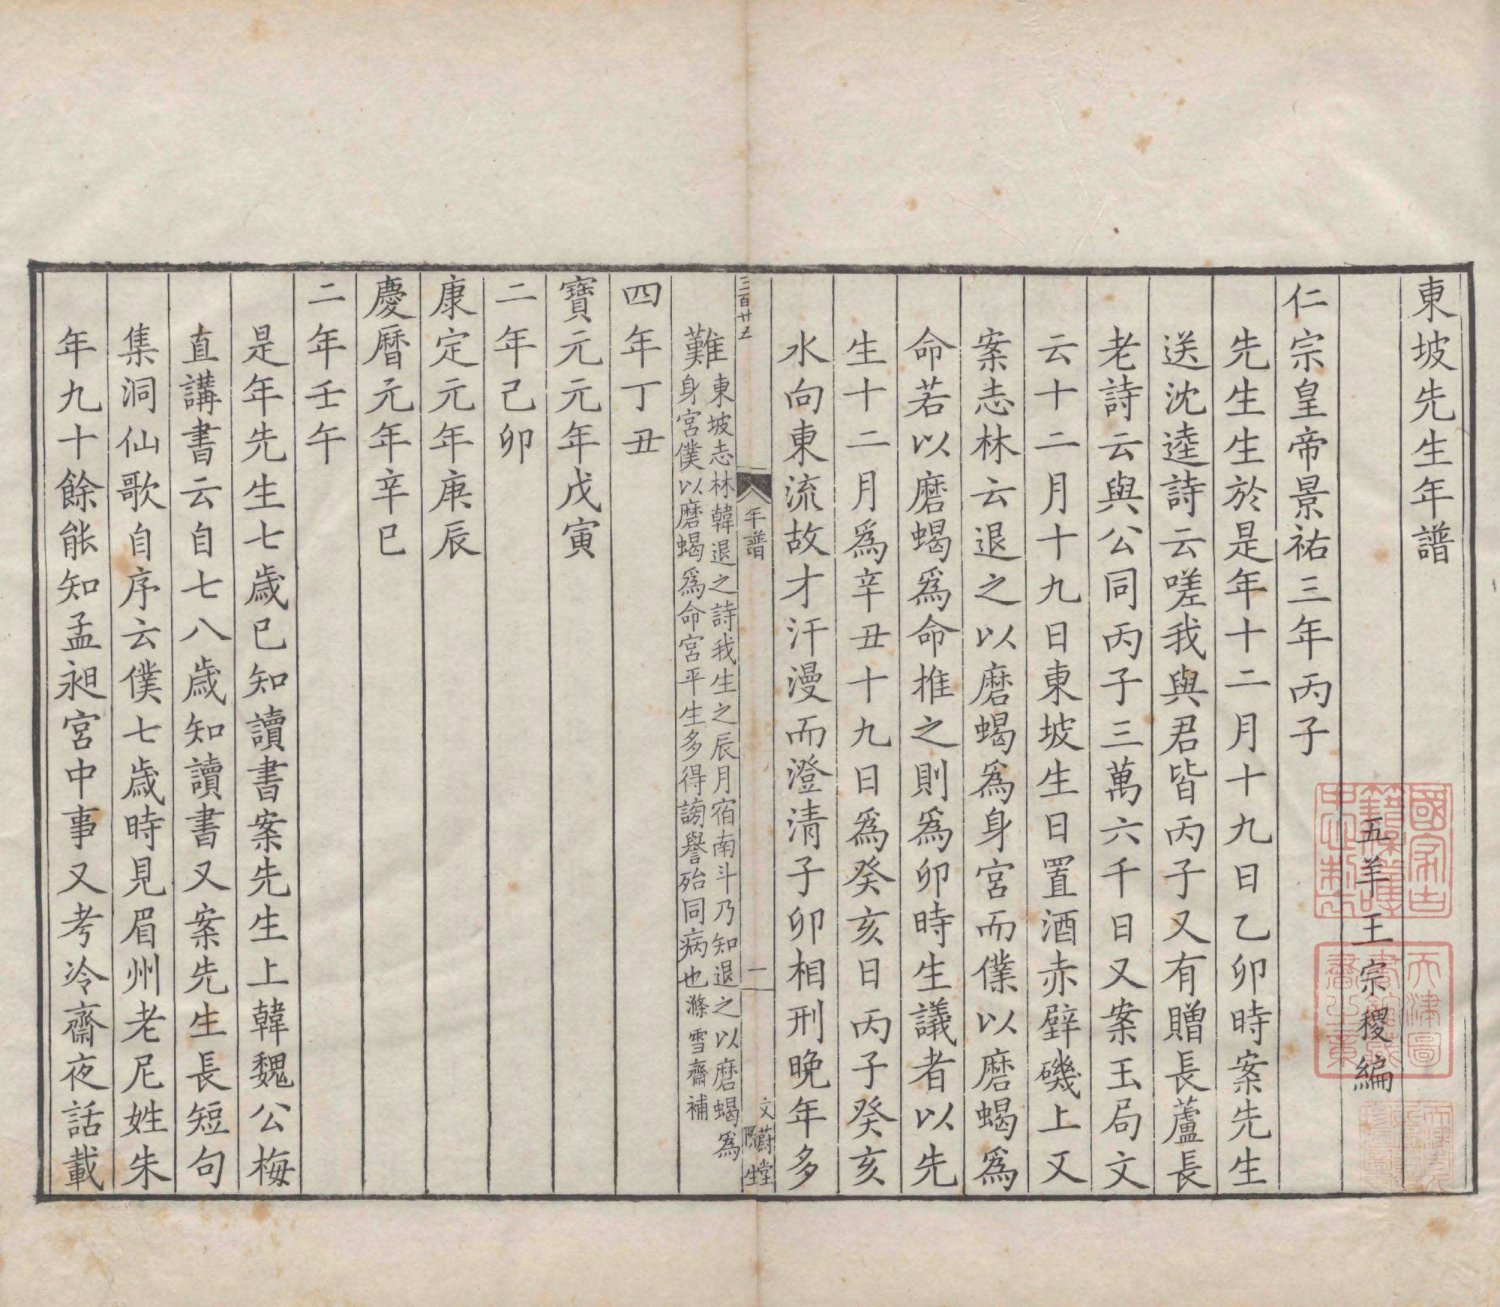 東坡先生年譜
五羊王宗稷編
仁宗皇帝景祐三年丙子
先生生於是年十二月十九日乙卯時案先生
送沈逵詩云嗟我與君皆丙子又有贈長蘆長
老詩云與公同丙子三萬六千日又案玉局文
云十二月十九日東坡生日置酒赤壁磯上又
案志林云退之以磨蝎爲身宮而僕以磨蝎爲
命若以磨蝎爲命推之則爲卯時生議者以先
生十二月爲辛丑十九日爲癸亥日丙子癸亥
水向東流故才汗漫而澄清子卯相刑晚年多
三百廿五
年譜
二
文蔚堂
難東坡志林韓退之詩我生之辰月宿南斗乃知退之以磨蝎爲
身宮僕以磨蝎爲命宮平生多得謗譽殆同病也滌雪齋補
四年丁丑
寶元元年戊寅
二年己卯
康定元年庚辰
慶曆元年辛巳
二年壬午
是年先生七歲已知讀書案先生上韓魏公梅
直講書云自七八歲知讀書又案先生長短句
集洞仙歌自序云僕七歲時見眉州老尼姓朱
年九十餘能知孟昶宮中事又考冷齋夜話載